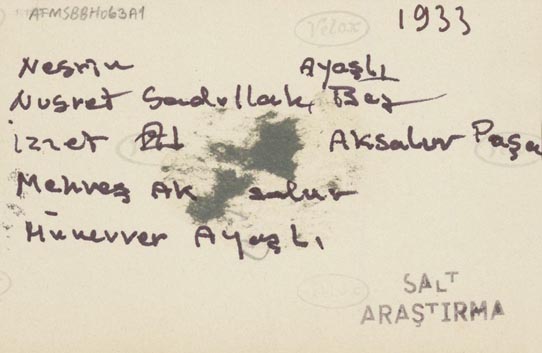 AFMSBBH063A1
1933
Velox
Nesrin Ayaşlı
Nusret Sadullah Bey
İzzet Aksalur Paşa
Mehveş Ak salur
Münevver Ayaşlı
SALT
ARAŞTIRMA